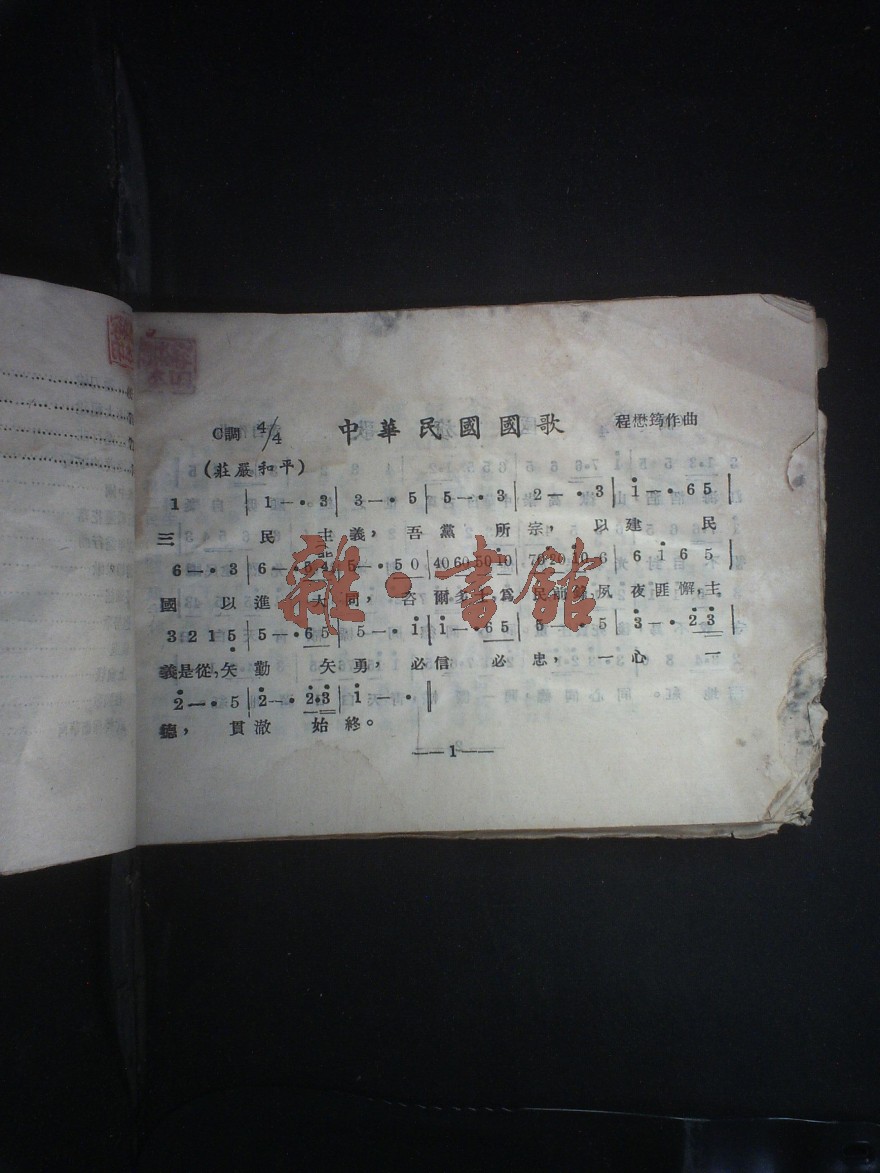 C調 4/4 中華民國國歌 程懋筠作曲
(莊嚴和平)
1 | 1 — · 3 | 3 — · 5 | 5 — · 3 | 2 — · 3 | i — · 6 5 |
三 民 主義，吾黨 所宗，以建 民
6 — · 3 | 6 — · 5 4 | 5 — · 5 0 | 40 60 50 i0 | 70 20 i0 6 | 6 i 6 5 |
國 以進 大同，咨爾多士，為民前鋒，夙夜匪懈，主
3 : 2 1 5 | 5 — · 6 5 | 5 — · i | i — · 6 5 | 5 — · 5 | 3 — · 2 3 |
義是從，矢勤 矢勇，必信 必忠，一心 一
2 — · 5 | 2 — · 2 · 3 | i — · ‖
德，貫澈 始終。
—1—
雜·書館